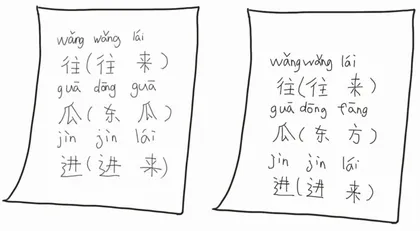 wǎng wǎng lái
往(往 来)
guā dōng guā
瓜(东 瓜)
jìn jìn lái
进(进 来)
wǎng wǎng lái
往(往 来)
guā dōng fāng
瓜(东 方)
jìn jìn lái
进(进 来)